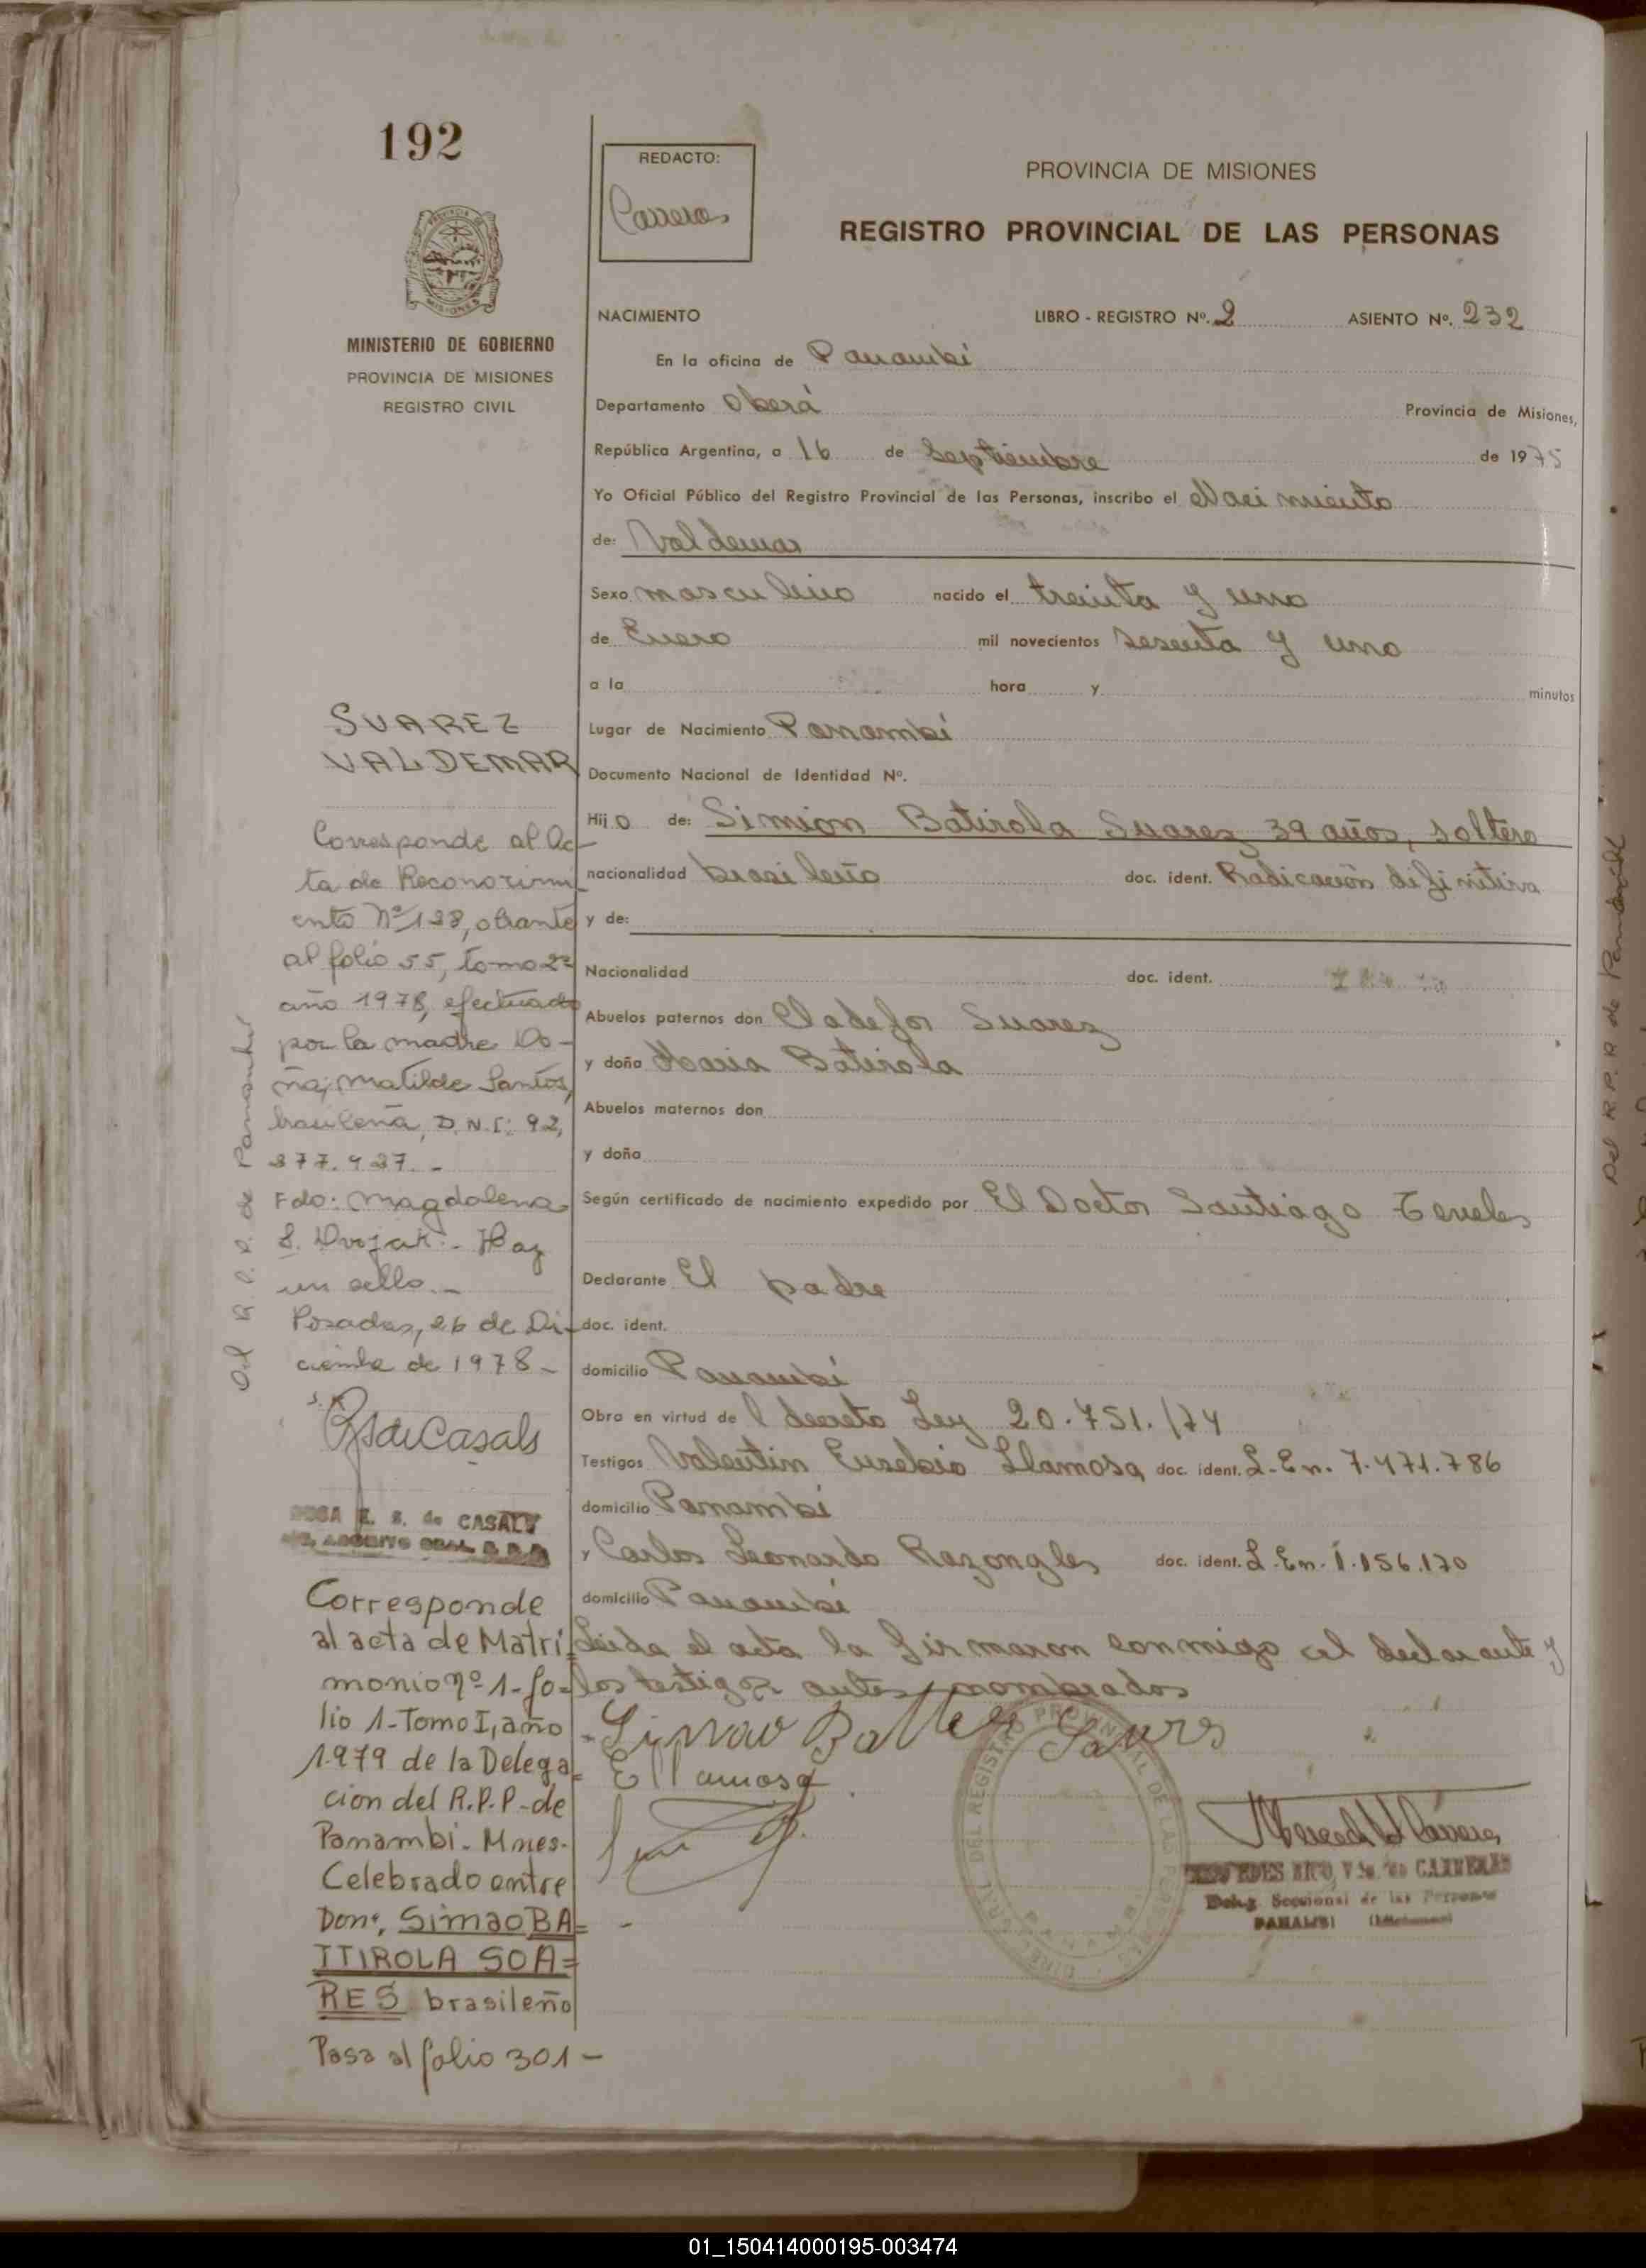 192
MINISTERIO DE GOBIERNO
PROVINCIA DE MISIONES
REGISTRO CIVIL
REDACTO:
Carreras
PROVINCIA DE MISIONES
REGISTRO PROVINCIAL DE LAS PERSONAS
NACIMIENTO LIBRO - REGISTRO Nº. 2 ASIENTO Nº. 232
En la oficina de Panambí
Departamento Oberá Provincia de Misiones,
República Argentina, a 16 de Septiembre de 1975
Yo Oficial Público del Registro Provincial de las Personas, inscribo el Nacimiento
de: Valdemar
Sexo masculino nacido el treinta y uno
de Enero mil novecientos sesenta y uno
a la hora y minutos
Lugar de Nacimiento Panambí
Documento Nacional de Identidad Nº.
Hijo de: Simion Batirola Suarez 39 años, soltero
nacionalidad brasileño doc. ident. Radicación difinitiva
y de:
Nacionalidad doc. ident.
Abuelos paternos don Suarez
y doña Maria Batirola
Abuelos maternos don
y doña
Según certificado de nacimiento expedido por El Doctor Santiago
Declarante El padre
doc. ident.
domicilio Panambí
Obra en virtud del decreto Ley 20.751./74
Testigos Valentin Eusebio Llamosa doc. ident. L.En. 7.471.786
domicilio Panambí
y Carlos Leonardo Razongles doc. ident. L.En. 1.156.170
domicilio Panambí
Leida el acta la firmaron conmigo el declarante y
los testigos antes nombrados
E Llamosa
SUAREZ
VALDEMAR
Corresponde al Ac-
ta de Reconocimi-
ento Nº 128, obrante
al folio 55, tomo 2º
año 1978, efectuado
por la madre Do-
ña; Matilde Santos,
brasileña, D.N.I: 92,
377.927.-
Fdo: Magdalena
S. Dvojak.- Hay
un sello.-
Posadas, 26 de Di-
ciembre de 1978-
RSdeCasals
ROSA E. S. de CASALS
Corresponde
al acta de Matri=
monio nº 1-fo=
lio 1-Tomo I, año
1.979 de la Delega=
cion del R.P.P-de
Panambí. Mnes-
Celebrado entre
Don, Simao BA=
TTIROLA SOA=
RES brasileño
Pasa al folio 301-
del R.P.P. de Panambí
MERCEDES RICO, Vda. de CARRERAS
Deleg. Seccional de las Personas
PANAMBI (Misiones)
01_150414000195-003474